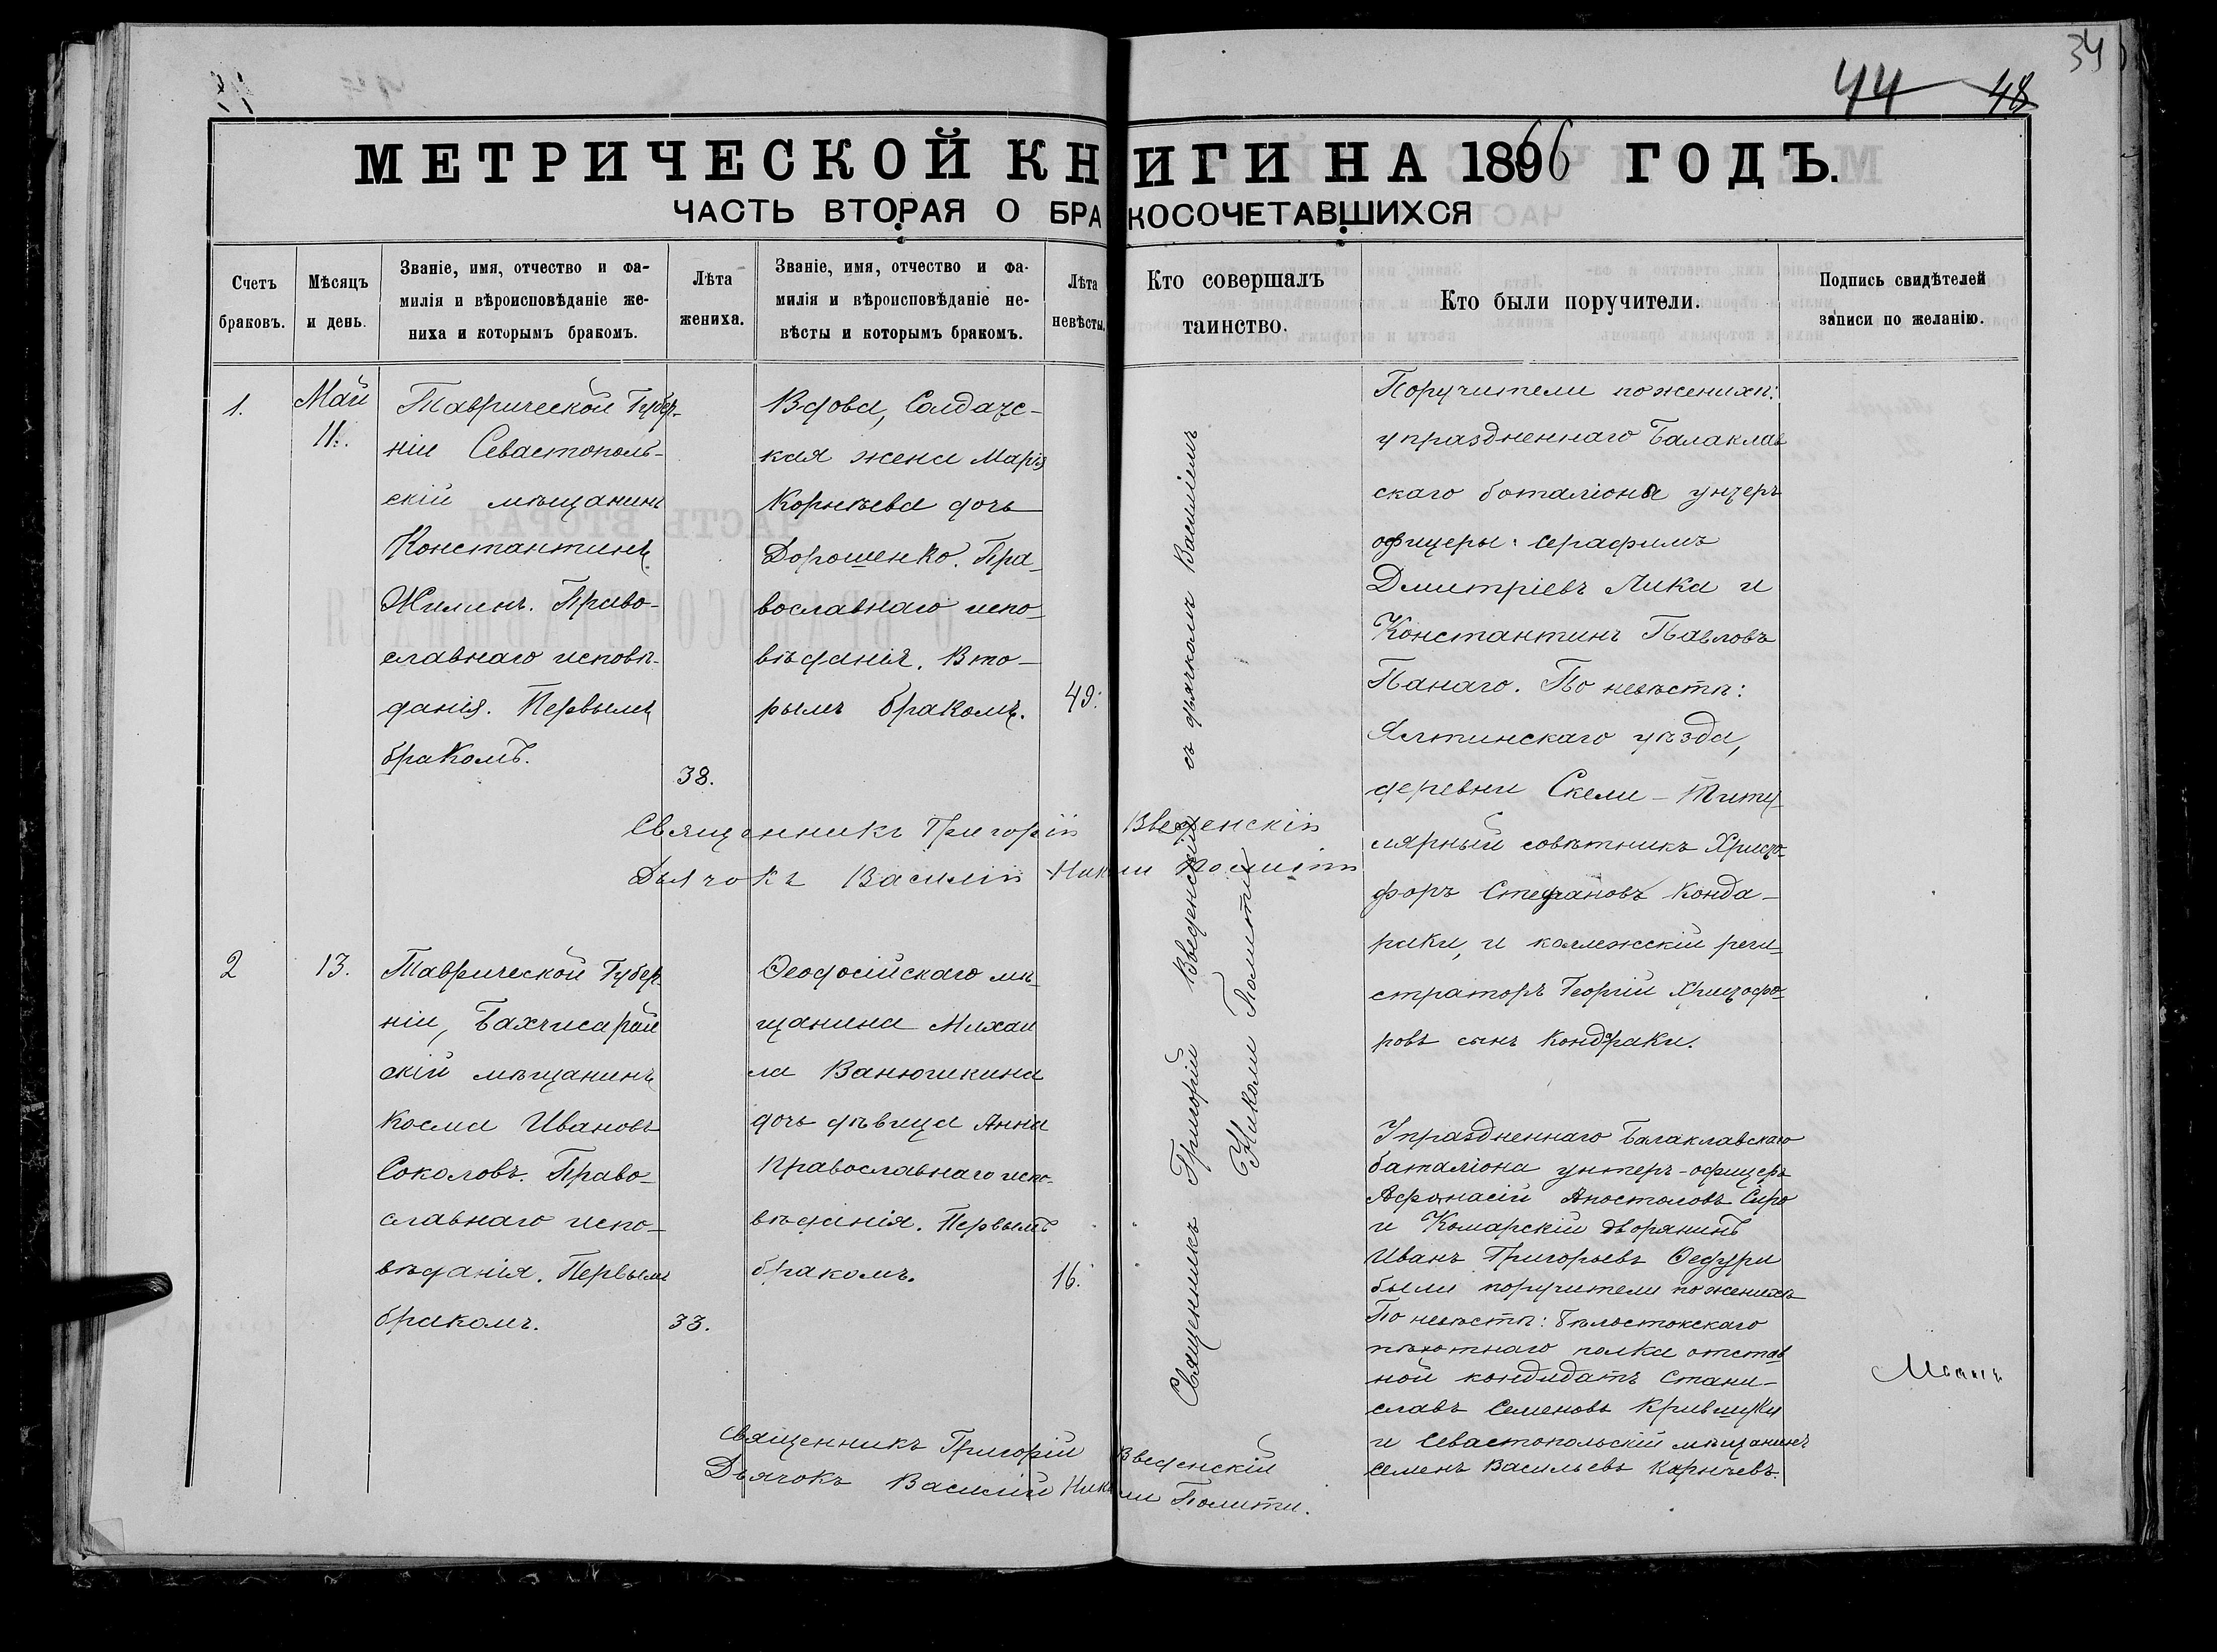 34
44 48
МЕТРИЧЕСКОЙ КНИГИ НА 1866 ГОДЪ.
ЧАСТЬ ВТОРАЯ О БРАКОСОЧЕТАВШИХСЯ
Счетъ
браковъ.
Мѣсяцъ
и день.
Званіе, имя, отчество и фа-
милія и вѣроисповѣданіе же-
ниха и которымъ бракомъ.
Лѣта
жениха.
Званіе, имя, отчество и фа-
милія и вѣроисповѣданіе не-
вѣсты и которымъ бракомъ.
Лѣта
невѣсты.
Кто совершалъ
таинство.
Кто были поручители.
Подпись свидѣтелей
записи по желанію.
1.
Май
11.
Таврической Губер-
ніи Севастополь-
скій мѣщанинъ
Константинъ
Жилинъ. Право-
славнаго исповѣ-
данія. Первымъ
бракомъ.
38.
Вдова, Солдатс-
кая жена Марія
Корнѣева дочь
Дорошенко. Пра-
вославнаго испо-
вѣданія. Вто-
рымъ бракомъ.
49.
Священникъ Григорій Введенскій съ дьячкомъ Василіемъ
Николи Политти
Поручители по женихѣ:
упраздненнаго Балаклав
скаго боталіона унтеръ
офицеры: Серафимъ
Дмитріевъ Лика и
Константинъ Павловъ
Панаго. По невѣстѣ:
Ялтинскаго уѣзда,
деревни Скели - Титу-
лярный совѣтникъ Христо-
форъ Стефановъ Конда-
раки, и коллежскій реги-
страторъ Георгій Христофо-
ровъ сынъ Кондараки.
Священникъ Григорій Введенскій
Дьячокъ Василій Николи Политти
2
13.
Таврической Губер-
ніи, Бахчисарай
скій мѣщанинъ
Косма Ивановъ
Соколовъ. Право-
славнаго испо-
вѣданія. Первымъ
бракомъ.
33.
Ѳеодосійскаго мѣ-
щанина Михаи
ла Ванюшкина
дочь дѣвица Анна
Православнаго испо-
вѣданія. Первымъ
бракомъ.
16.
Упраздненнаго Балаклавскаго
баталіона унтеръ-офицеръ
Афанасій Апостоловъ Сиро
и Комарскій дворянинъ
Иванъ Григорьевъ Ѳедури
были поручители по женихѣ
По невѣстѣ: Бѣлостокскаго
пѣхотнаго полка отстав
ной кондидатъ Стани-
славъ Семеновъ
и Севастопольскій мѣщанинъ
Семенъ Васильевъ
Священникъ Григорій Введенскій
Дьячокъ Василій Николи Политти.